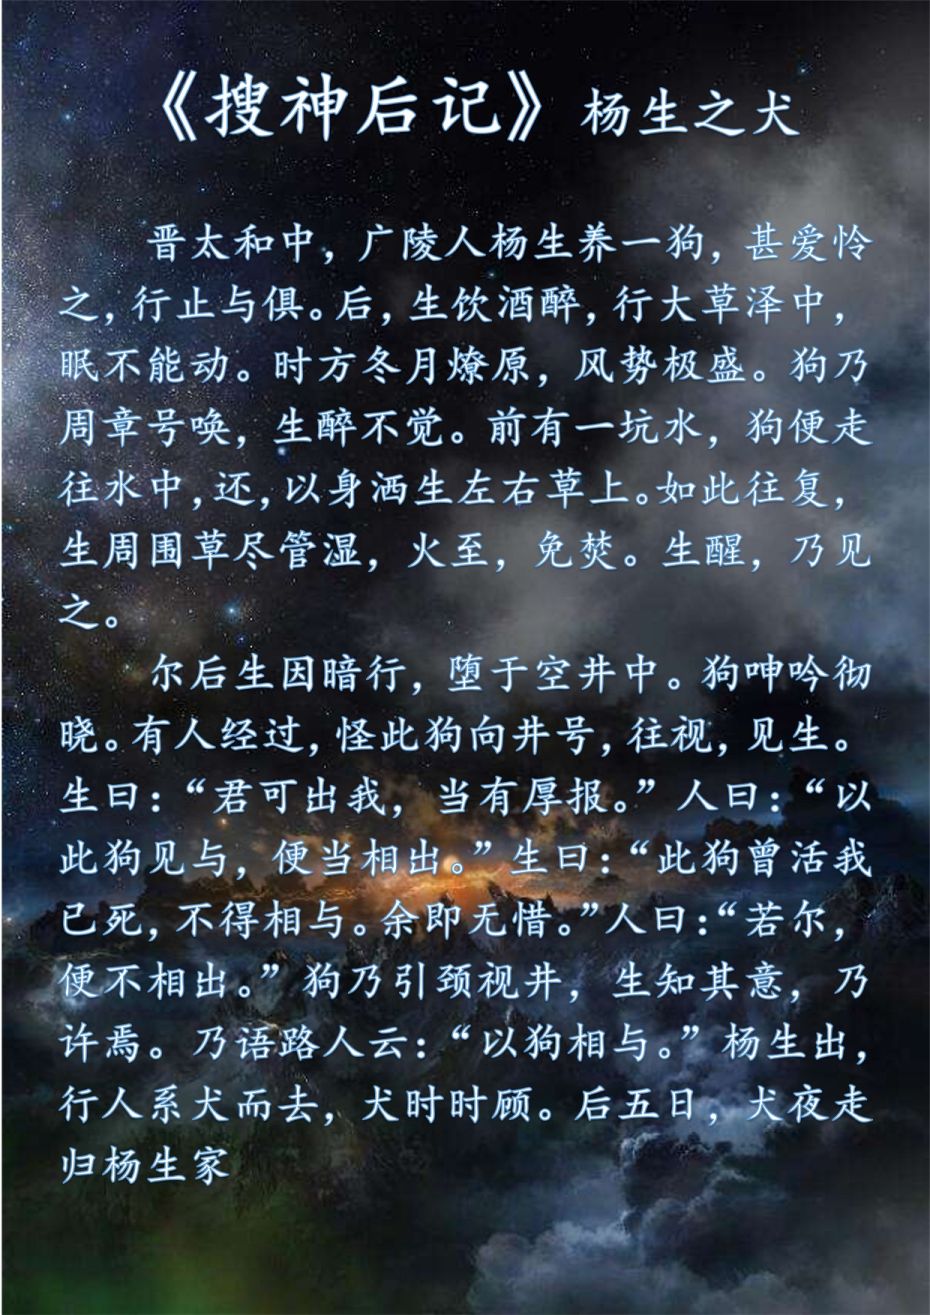 《搜神后记》杨生之犬
晋太和中，广陵人杨生养一狗，甚爱怜
之，行止与俱。后，生饮酒醉，行大草泽中，
眠不能动。时方冬月燎原，风势极盛。狗乃
周章号唤，生醉不觉。前有一坑水，狗便走
往水中，还，以身洒生左右草上。如此往复，
生周围草尽管湿，火至，免焚。生醒，乃见
之。
尔后生因暗行，堕于空井中。狗呻吟彻
晓。有人经过，怪此狗向井号，往视，见生。
生曰：“君可出我，当有厚报。”人曰：“以
此狗见与，便当相出。”生曰：“此狗曾活我
已死，不得相与。余即无惜。”人曰：“若尔，
便不相出。”狗乃引颈视井，生知其意，乃
许焉。乃语路人云：“以狗相与。”杨生出，
行人系犬而去，犬时时顾。后五日，犬夜走
归杨生家